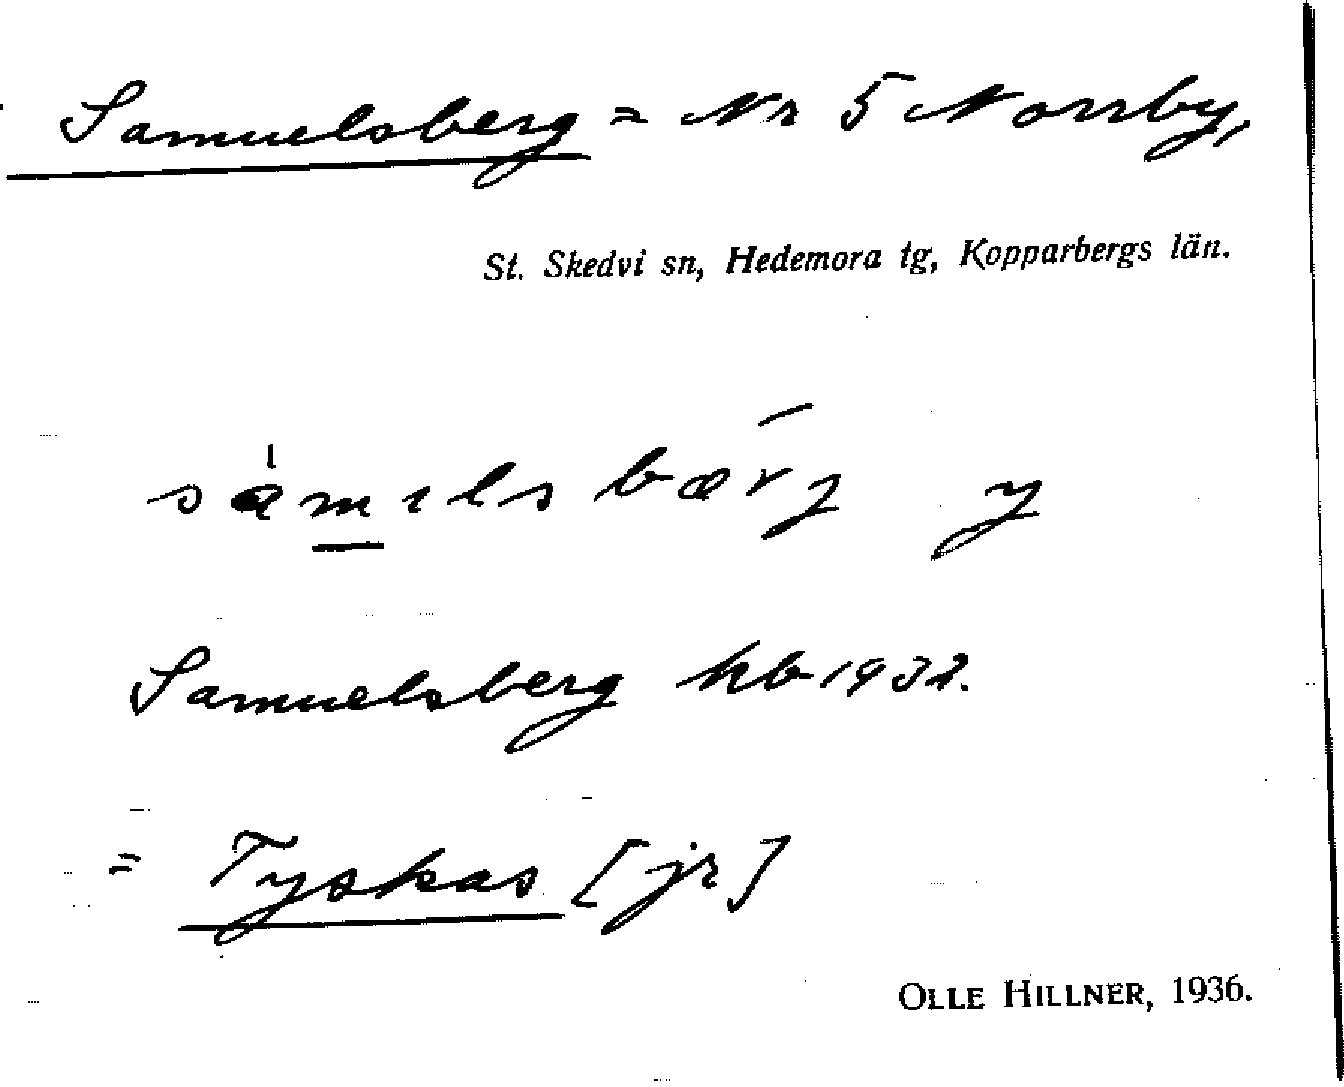 Samuelsberg = Nr 5 Norrby,
St. Skedvi sn, Hedemora tg, Kopparbergs län.
sàmılsbærg y
Samuelsberg hb 1932.
= Tyskas [jr]
OLLE HILLNER, 1936.